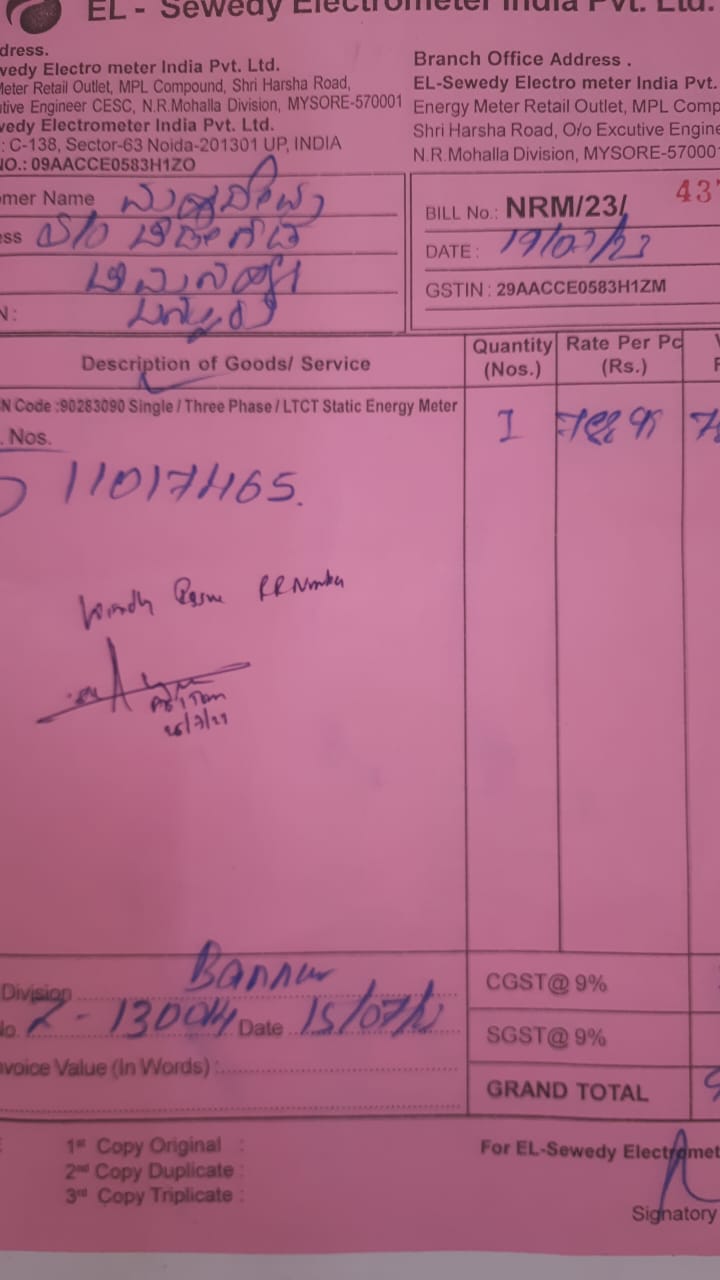 EL - Sewedy Electrometer India Pvt. Ltd.
dress.
wedy Electro meter India Pvt. Ltd.
Meter Retail Outlet, MPL Compound, Shri Harsha Road,
utive Engineer CESC, N.R.Mohalla Division, MYSORE-570001
wedy Electrometer India Pvt. Ltd.
: C-138, Sector-63 Noida-201301 UP, INDIA
NO.: 09AACCE0583H1ZO
Branch Office Address .
EL-Sewedy Electro meter India Pvt.
Energy Meter Retail Outlet, MPL Comp
Shri Harsha Road, O/o Excutive Engine
N.R.Mohalla Division, MYSORE-57000
mer Name
ess S/o
N :
BILL No.: NRM/23/ 437
DATE : 19/07/23
GSTIN : 29AACCE0583H1ZM
Description of Goods/ Service
Quantity (Nos.)
Rate Per Pc (Rs.)
N Code :90283090 Single / Three Phase / LTCT Static Energy Meter
. Nos.
1
11017465.
RR Number
Division Bannur
No. 2 - 13004 Date 15/07/2
nvoice Value (In Words) :
CGST@ 9%
SGST@ 9%
GRAND TOTAL
1st Copy Original :
2nd Copy Duplicate :
3rd Copy Triplicate :
For EL-Sewedy Electromet
Signatory